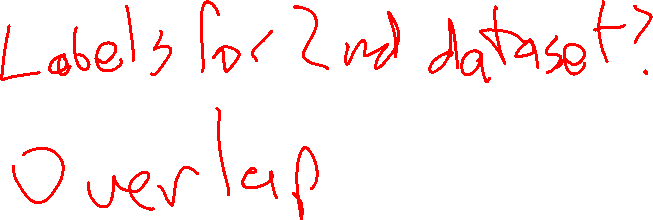 Labels for 2nd dataset?
Overlap